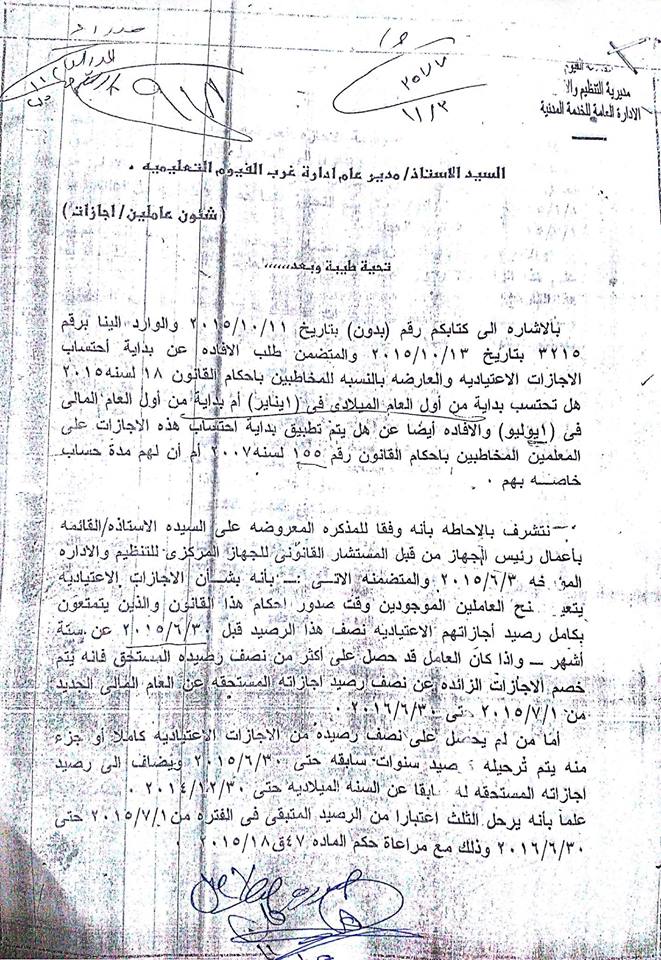 مديرية التنظيم والا
الادارة العامة للخدمة المدنية
٣٥٧٧
١١/٣
٩١٨
السيد الاستاذ/ مدير عام ادارة غرب الفيوم التعليميه .
( شئون عاملين/ اجازات )
تحية طيبة وبعد......
بالاشاره الى كتابكم رقم (بدون) بتاريخ ٢٠١٥/١٠/١١ والوارد الينا برقم
٣٢١٥ بتاريخ ٢٠١٥/١٠/١٣ والمتضمن طلب الافاده عن بداية أحتساب
الاجازات الاعتياديه والعارضه بالنسبه للمخاطبين باحكام القانون ١٨ لسنه ٢٠١٥
هل تحتسب بداية من أول العام الميلادى فى (١يناير) أم بداية من أول العام المالى
فى (١يوليو) والافاده أيضا عن هل يتم تطبيق بداية احتساب هذه الاجازات على
المعلمين المخاطبين باحكام القانون رقم ١٥٥ لسنه ٢٠٠٧ أم أن لهم مدة حساب
خاصه بهم .
نتشرف بالاحاطه بأنه وفقا للمذكره المعروضه على السيده الاستاذه/القائمه
بأعمال رئيس الجهاز من قبل المستشار القانونى للجهاز المركزى للتنظيم والاداره
المو خه ٢٠١٥/٦/٣ والمتضمنه الاتى :ـ بأنه بشأن الاجازات الاعتياديه
يتعي نح العاملين الموجودين وقت صدور احكام هذا القانون والذين يتمتعون
بكامل رصيد أجازاتهم الاعتياديه نصف هذا الرصيد قبل ٢٠١٥/٦/٣٠ عن ستة
أشهر ـ واذا كان العامل قد حصل على أكثر من نصف رصيده المستحق فانه يتم
خصم الاجازات الزائده عن نصف رصيد اجازاته المستحقه عن العام المالى الجديد
من ٢٠١٥/٧/١ حتى ٢٠١٦/٦/٣٠ .
أما من لم يحصل على نصف رصيده من الاجازات الاعتياديه كاملا أو جزء
منه يتم ترحيله صيد سنوات سابقه حتى ٢٠١٥/٦/٣٠ ويضاف الى رصيد
اجازاته المستحقه له ابقا عن السنه الميلاديه حتى ٢٠١٤/١٢/٣٠ .
علما بأنه يرحل الثلث اعتبارا من الرصيد المتبقى فى الفتره من ٢٠١٥/٧/١ حتى
٢٠١٦/٦/٣٠ وذلك مع مراعاة حكم الماده ٤٧ق٢٠١٥/١٨ .